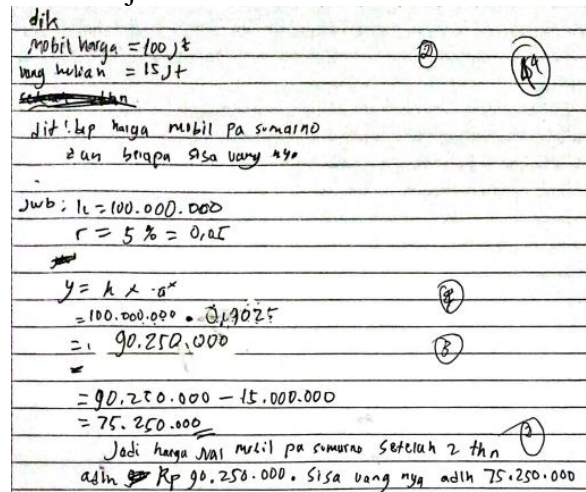 dik
Mobil harga = 100 jt
uang kuliah = 15 jt
②
dit : brp harga mobil pa sumarno
dan brapa sisa uang nya
Jwb : k = 100.000.000
r = 5 % = 0,05
y = k x a^x
= 100.000.000 • 0,9025
= 90.250.000
③
= 90.250.000 – 15.000.000
= 75.250.000
Jadi harga jual mobil pa sumarno Setelah 2 thn
adlh Rp 90.250.000. Sisa uang nya adlh 75.250.000